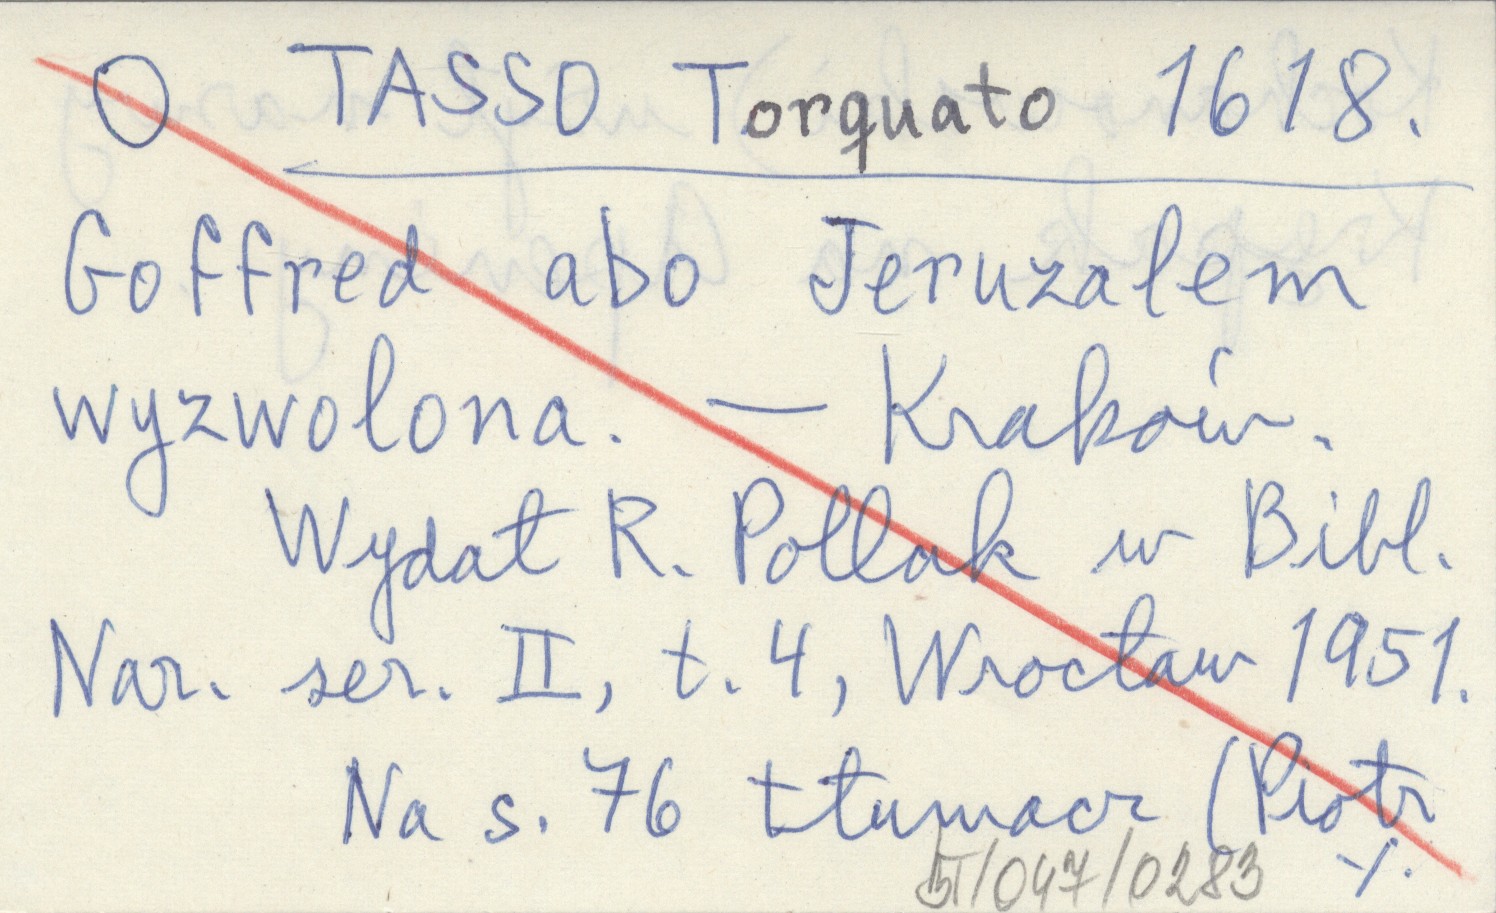 O TASSO Torquato 1618.
Goffred abo Jeruzalem
wyzwolona. — Kraków.
Wydał R. Pollak w Bibl.
Nar. ser. II, t. 4, Wrocław 1951.
Na s. 76 tłumacz (Piotr
/047/0283 ·/·